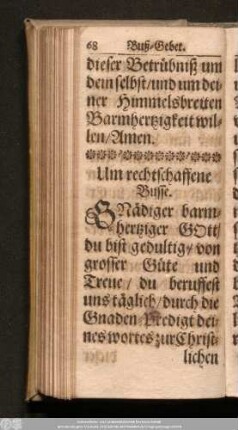 68 Buß-Gebet.
dieser Betrübniß um
dein selbst/und um dei-
ner Himmelsbreiten
Barmhertzigkeit wil-
len/Amen.
Um rechtschaffene
Busse.
GNädiger barm-
hertziger GOtt/
du bist gedultig/ von
grosser Güte und
Treue/ du beruffest
uns täglich/durch die
Gnaden Predigt dei-
nes wortes zur Christ-
lichen